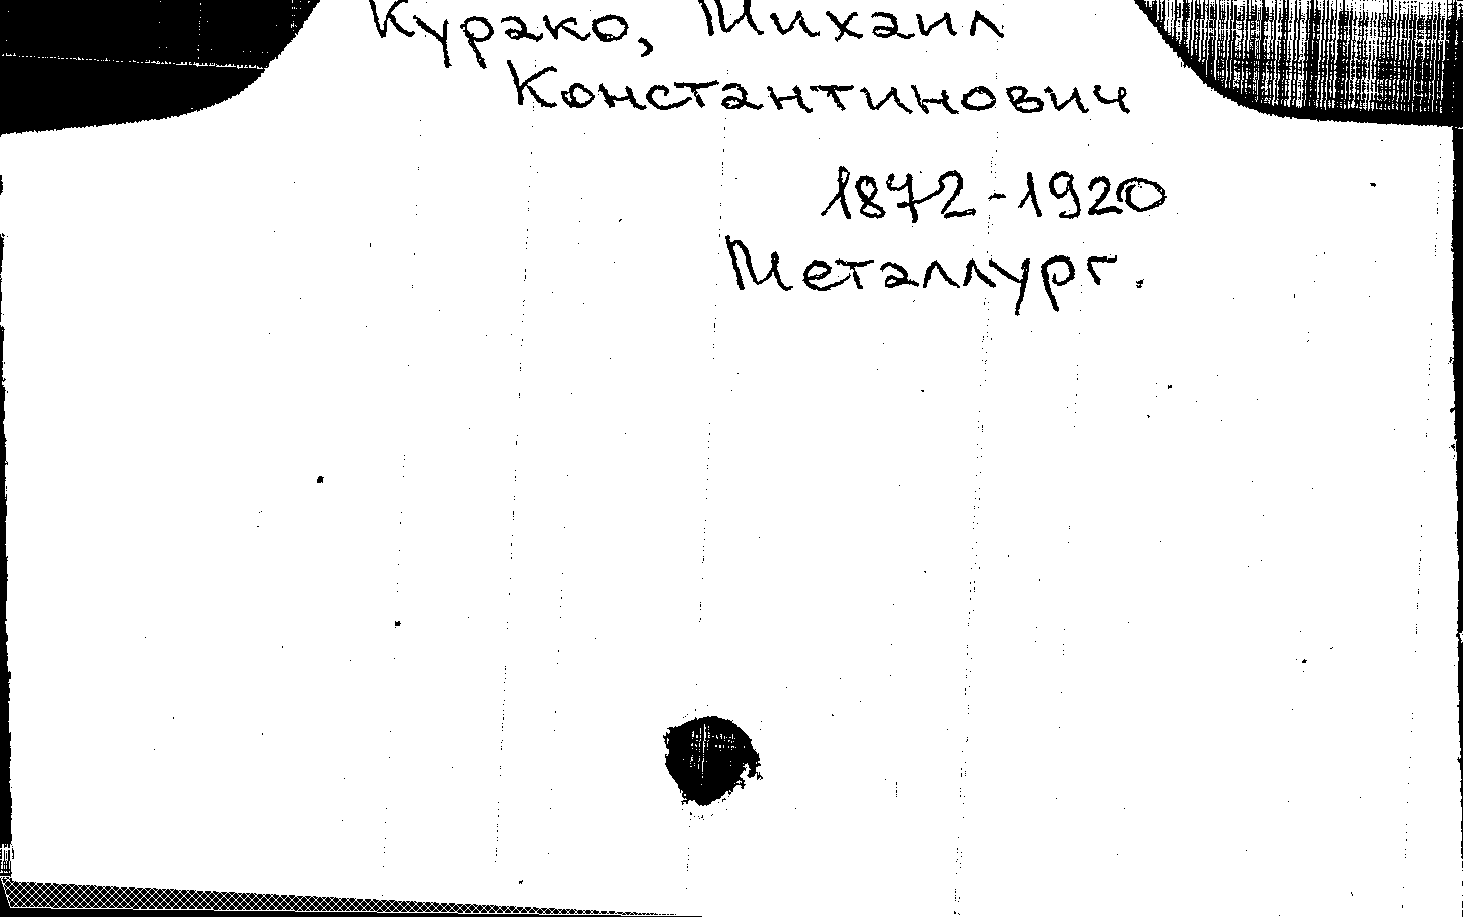 Курако, Михаил
Константинович
1872-1920
Металлург.